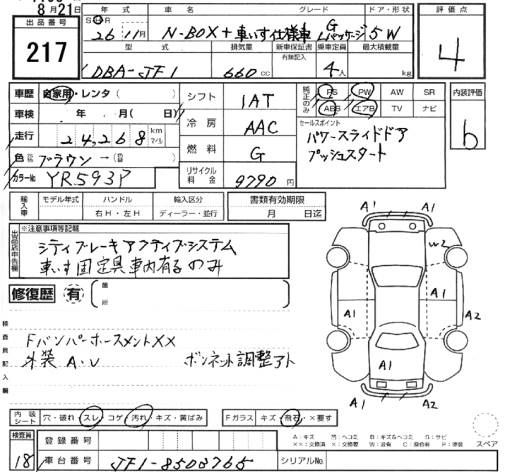 8月21日
出品番号
217
年式 車名 グレード ドア・形状
S H 26 年 11月 N-BOX+車いす仕様車 G Lパッケージ 5W
型式 排気量 新車保証書 乗車定員 最大積載量
有無記入
DBA-JF1 660 cc 4人 kg
評価点
4
車歴 自家用・レンタ( )
車検 年 月( 日)
走行 24,268 km
マイル
色 ブラウン→( )
カラーNo YR593P
シフト 1AT
冷房 AAC
燃料 G
リサイクル料金 9790円
純正のみ PS PW AW SR
ABS エアB TV ナビ
セールスポイント
パワースライドドア
プッシュスタート
内装評価
b
輸入車 モデル年式 ハンドル 輸入区分
右H・左H ディーラー・並行
書類有効期限
月 日迄
出品店申告欄
※注意事項等記載
シティブレーキアクティブシステム
車いす固定具車内有るのみ
修復歴 有 箇所
検査員記入欄
FバンパーホースメントXX
外装A・U ボンネット調整アト
A1 A1
W2
A1 A1 A2
A1
A1 A2
内装シート 穴・破れ・スレ・コゲ・汚れ・キズ・黄ばみ Fガラス キズ・飛石・×要す
スペア
検査員
18
登録番号
車台番号 JF1-8503765 シリアルNo.